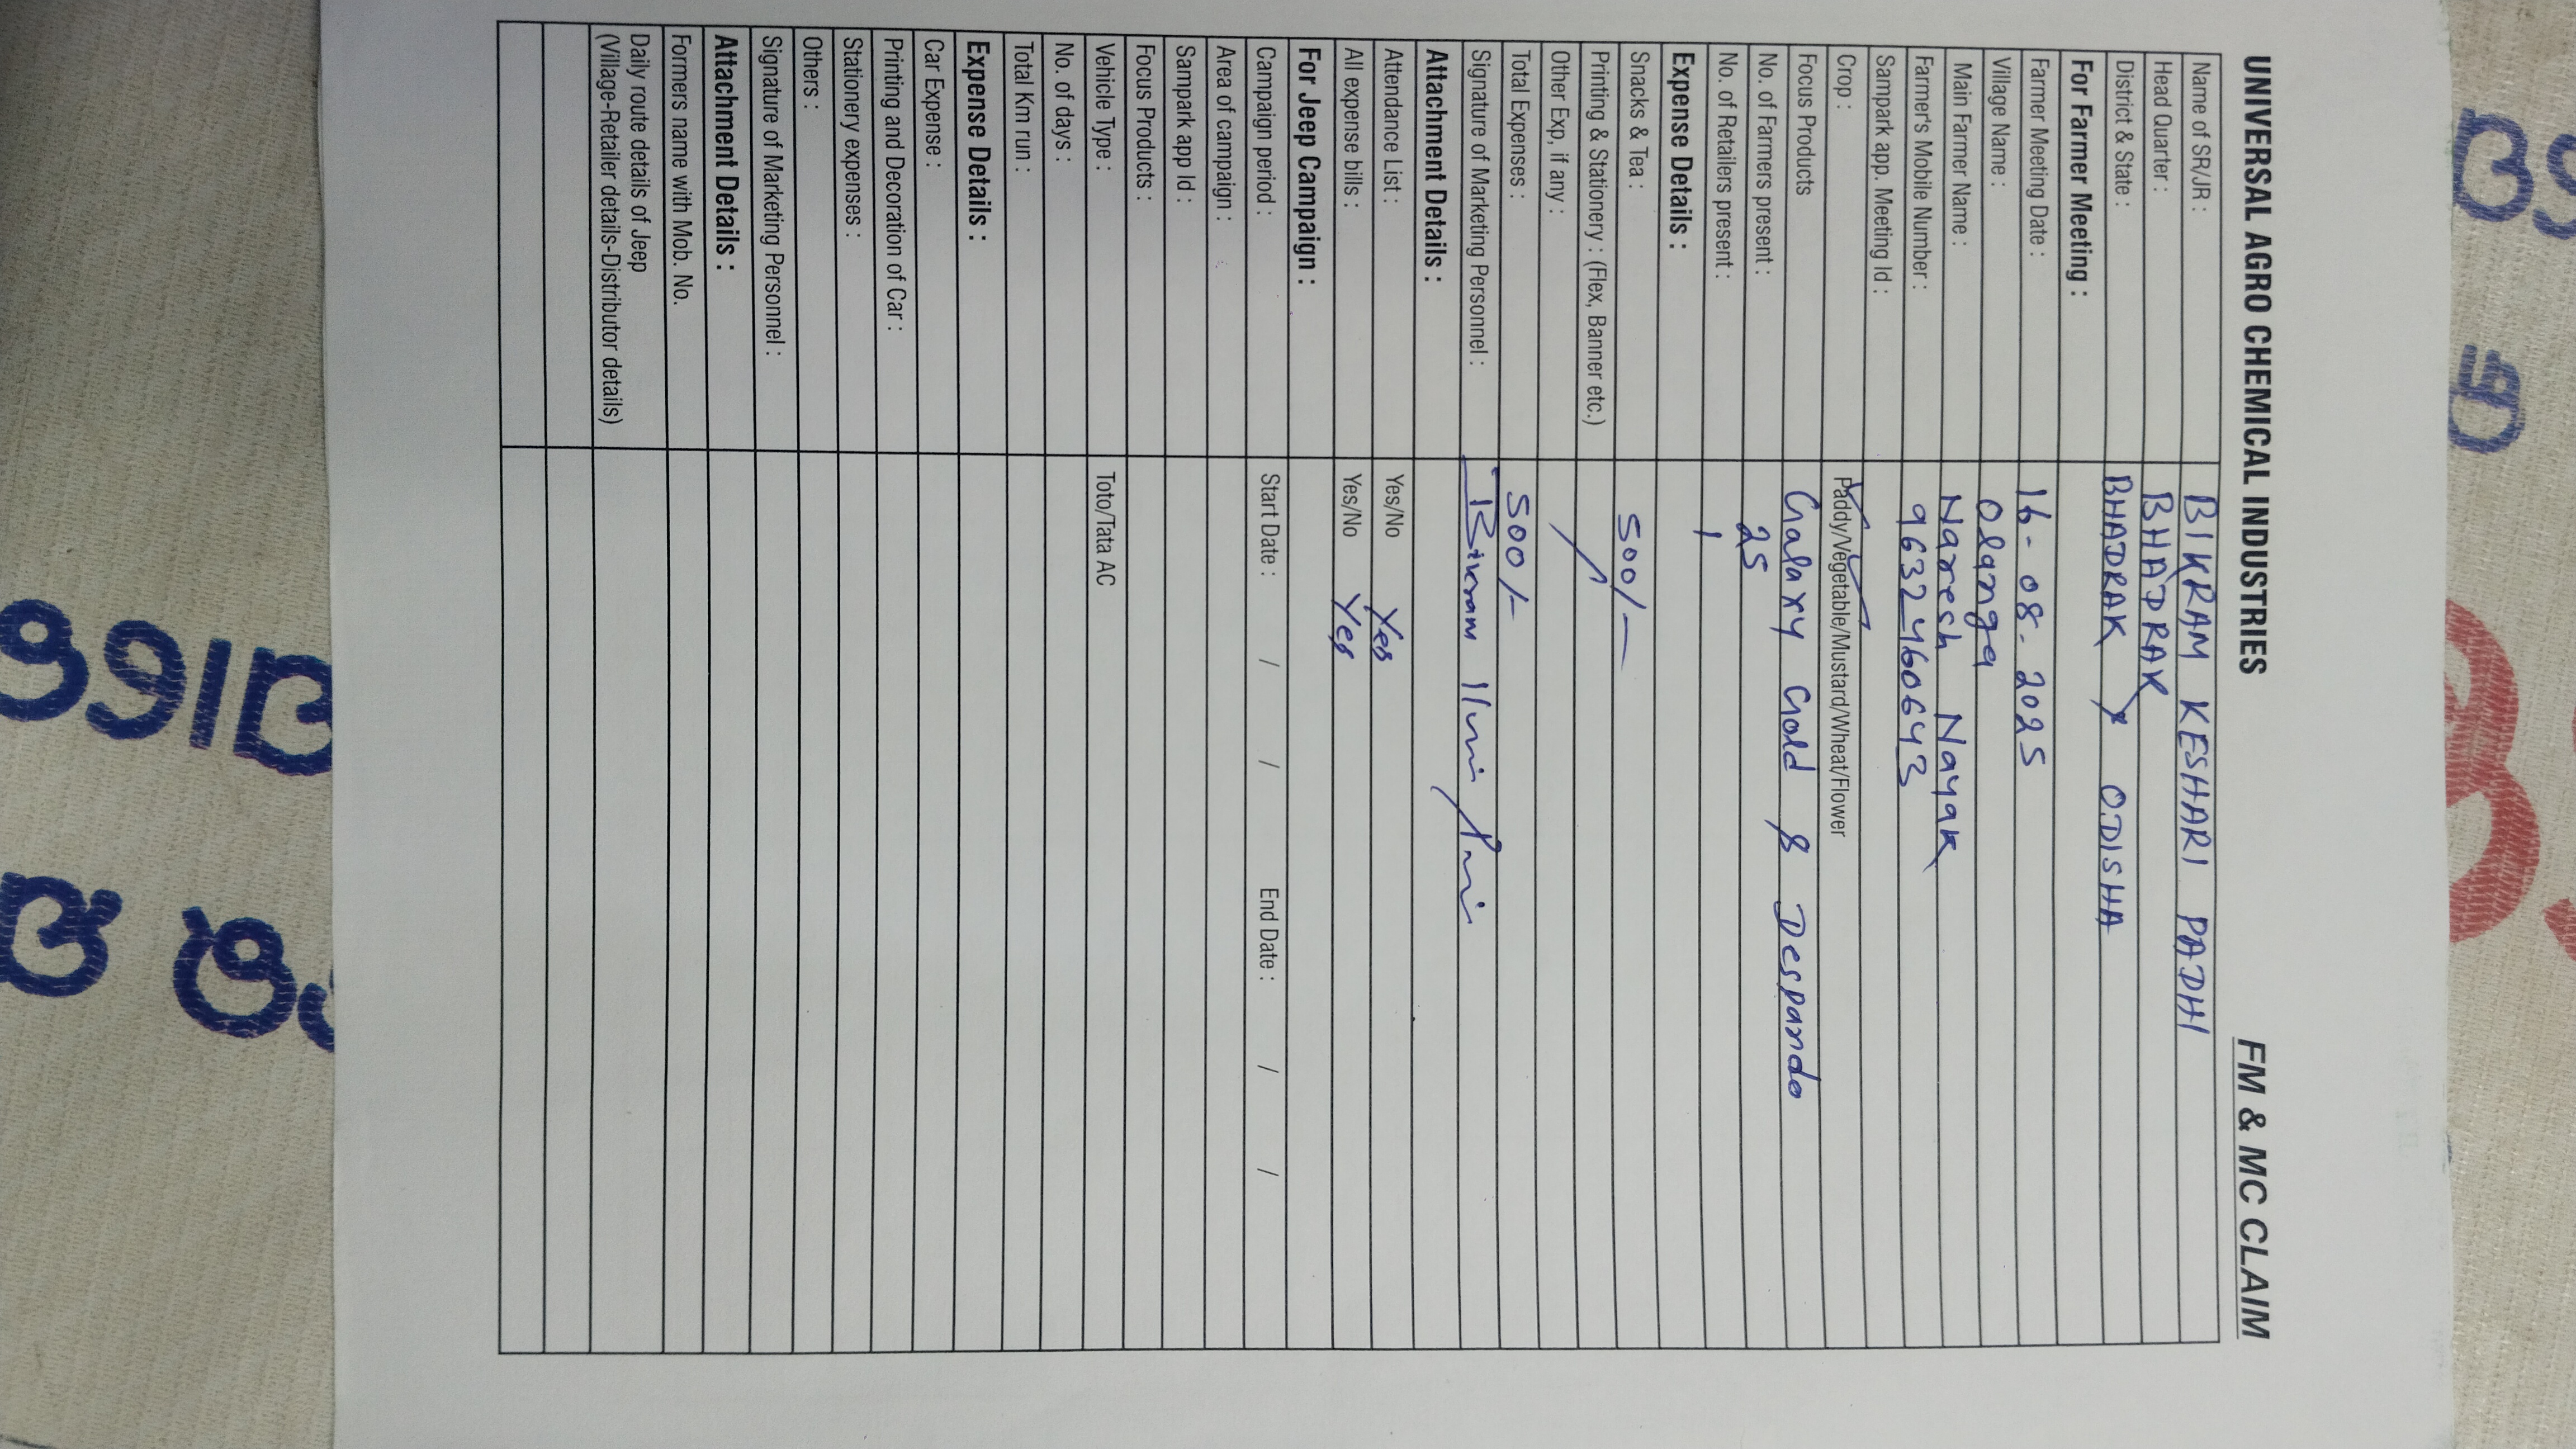 UNIVERSAL AGRO CHEMICAL INDUSTRIES FM & MC CLAIM
Name of SR/JR : BIKRAM KESHARI PADHI
Head Quarter : BHADRAK
District & State : BHADRAK, ODISHA
For Farmer Meeting :
Farmer Meeting Date : 16-08-2025
Village Name : Olanga
Main Farmer Name : Naresh Nayak
Farmer's Mobile Number : 9632460643
Sampark app. Meeting Id :
Crop : Paddy/Vegetable/Mustard/Wheat/Flover
Focus Products Galaxy Gold & Despando
No. of Farmers present : 25
No. of Retailers present : 1
Expense Details :
Snacks & Tea : 500/-
Printing & Stationery : (Flex, Banner etc.)
Other Exp, if any :
Total Expenses : 500/-
Signature of Marketing Personnel :
Attachment Details :
Attendance List : Yes/No Yes
All expense bills : Yes/No Yes
For Jeep Campaign :
Campaign period : Start Date : / / End Date : / /
Area of campaign :
Sampark app Id :
Focus Products :
Vehicle Type : Toto/Tata AC
No. of days :
Total Km run :
Expense Details :
Car Expense :
Printing and Decoration of Car :
Stationery expenses :
Others :
Signature of Marketing Personnel :
Attachment Details :
Formers name with Mob. No.
Daily route details of Jeep
(Village-Retailer details-Distributor details)